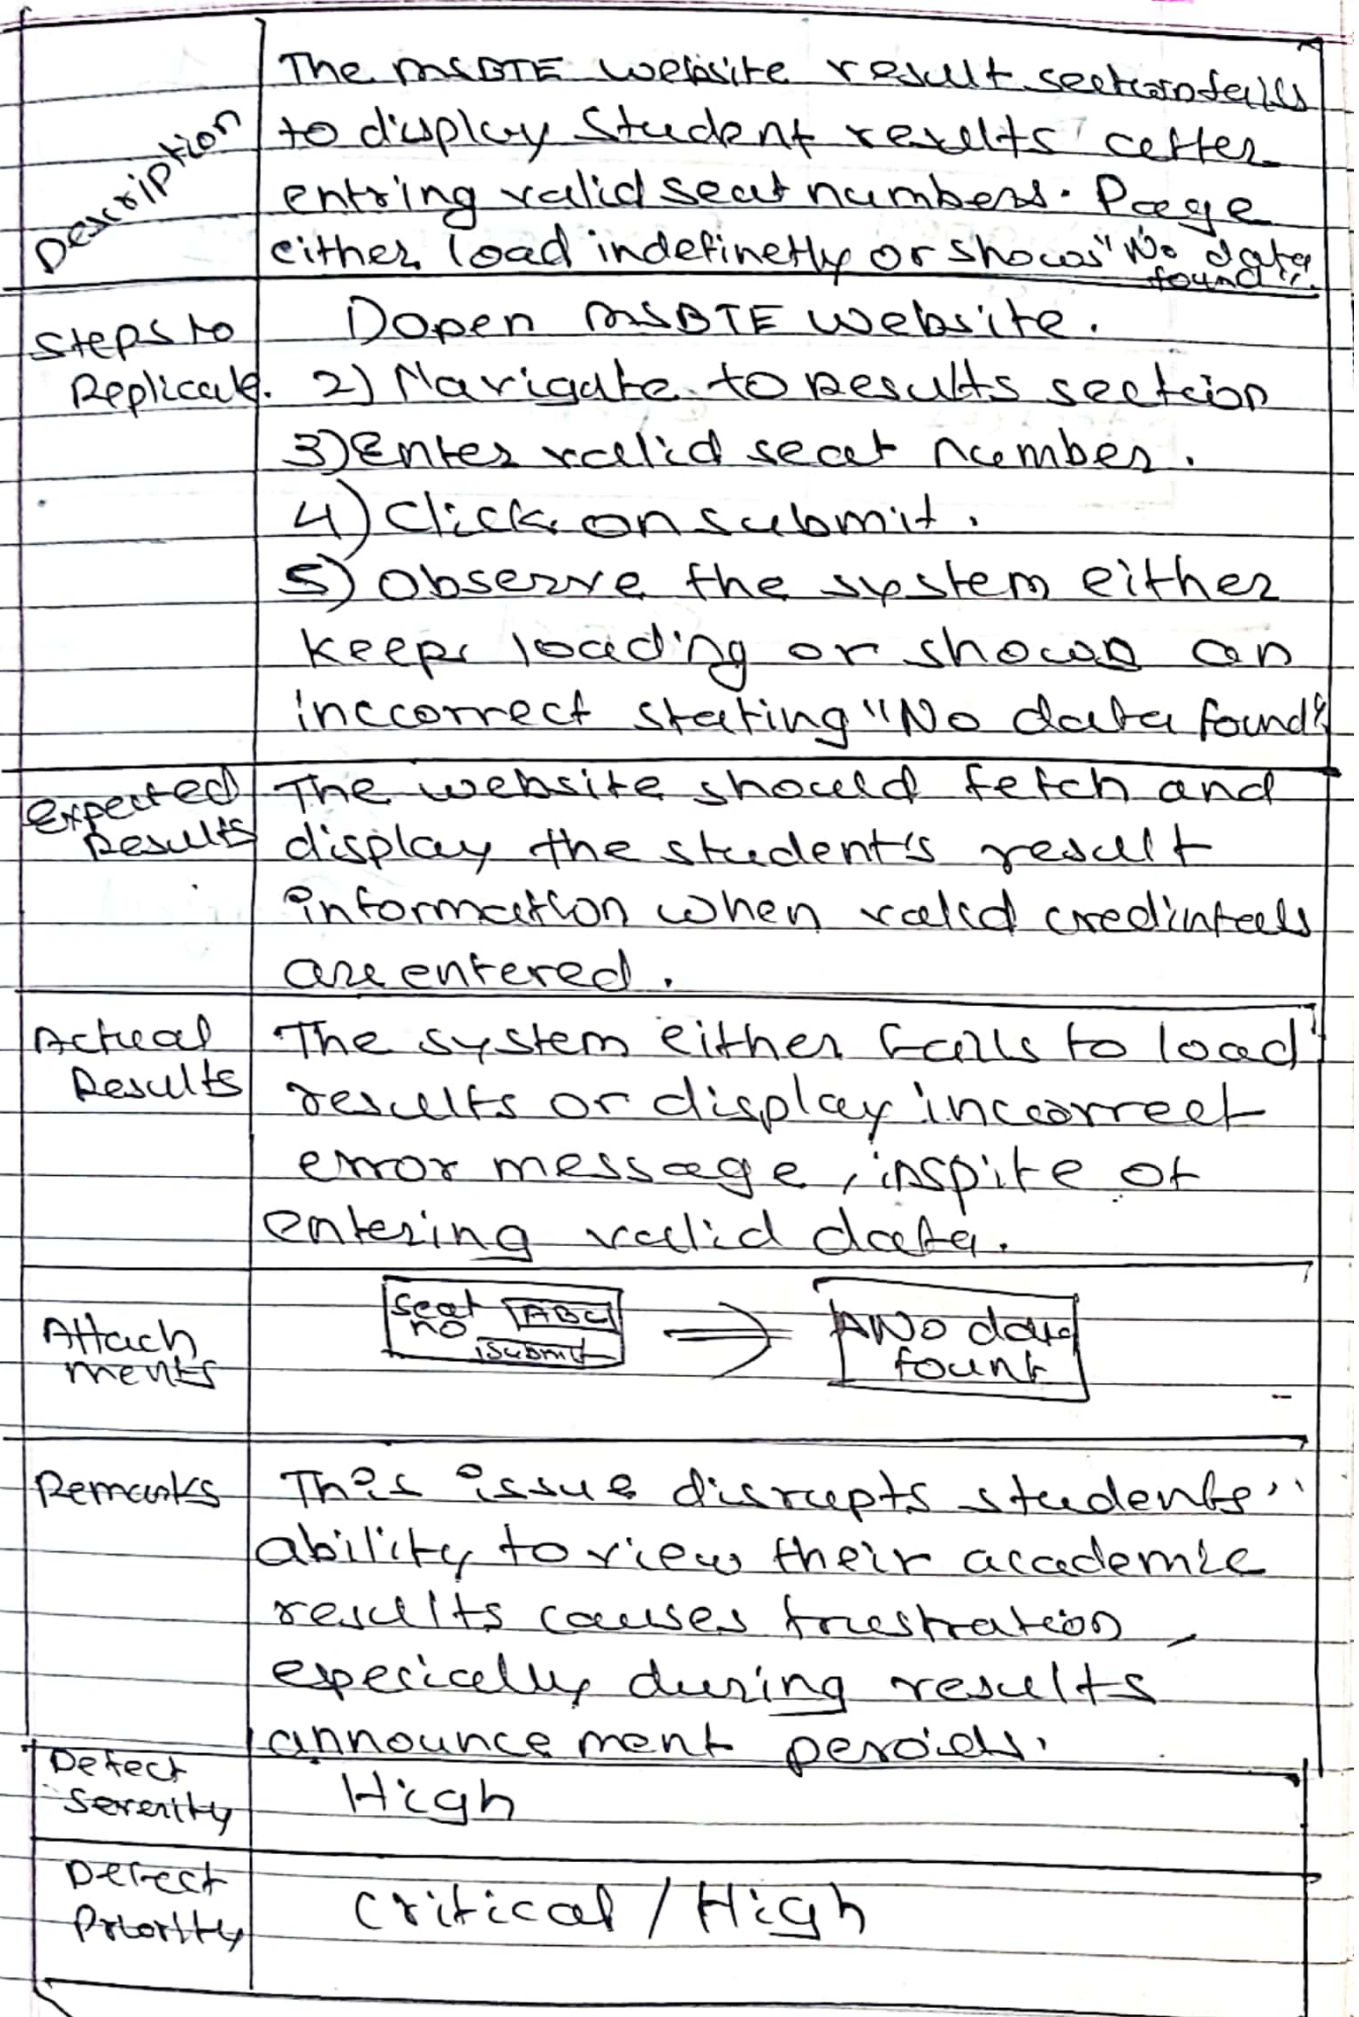 Description
The MSBTE website result section fails
to display student results after
entring valid seat numbers. Page
either load indefinetly or shows "No data
found".
Steps to
Replicate.
1) open MSBTE website.
2) Navigate to results section
3) Enter valid seat number.
4) Click on submit.
5) Observe the system either
keeps loading or shows an
inccorrect stating "No data found".
Expected
Results
The website should fetch and
display the student's result
information when valid credintials
are entered.
Actual
Results
The system either fails to load
results or display inccorrect
error message, inspite of
entering valid data.
Attach
ments
Seat no ABC
submit
No data
found
Remarks
This issue disrupts students'
ability to view their academic
results causes frustration,
especically during results
announcement peroids.
Defect
Severity
High
Defect
Priority
Critical / High